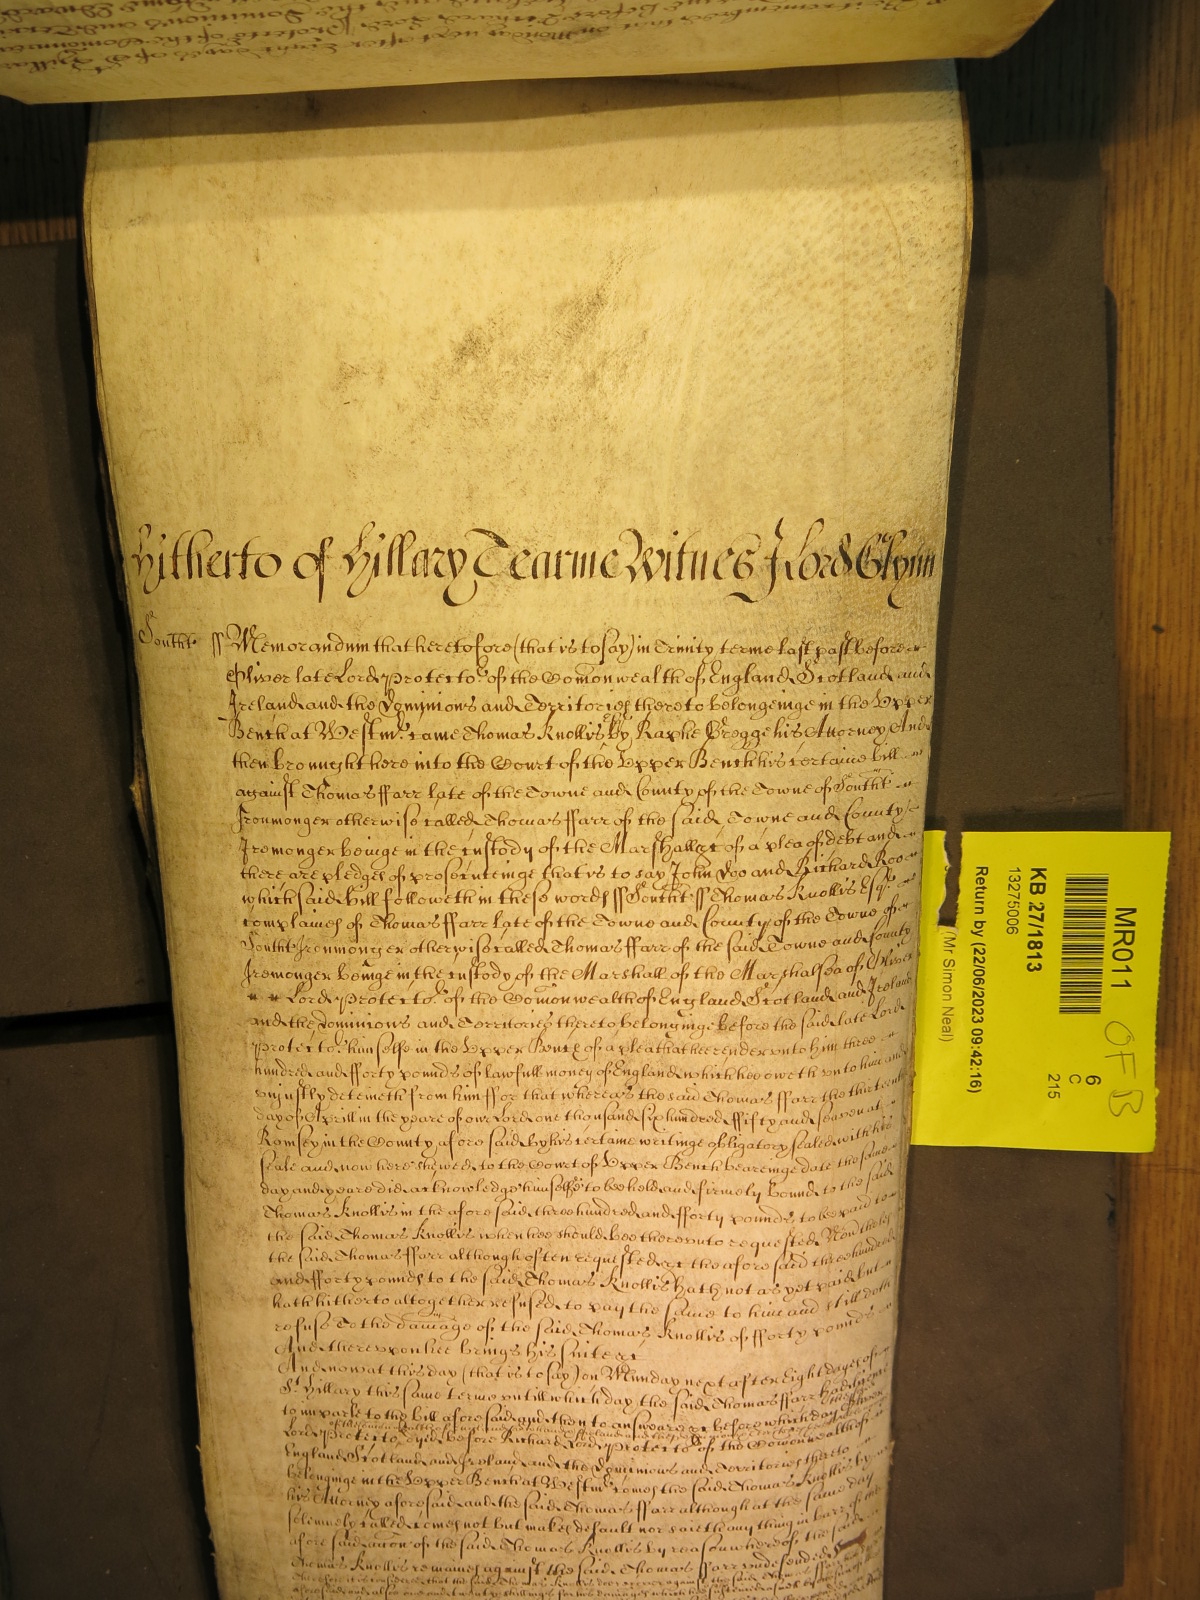 Hitherto of Hillary Tearme Witnes J Lord Glynn
Southt ss Memorandum that heretofore (that is to say) in Trinity terme last past before
Oliver late Lord Protector of the Comonwealth of England Scotland and
Ireland and the Dominions and Territories thereto belongeinge in the Upper
Bench at Westmr came Thomas Knollis by Raphe Bregge his Attorney And
then brought here into the Court of the Upper Bench his certaine bill
against Thomas ffarr late of the Towne and County of the Towne of Southt
Ironmonger otherwise called Thomas ffarr of the said Towne and County
Iremonger beinge in the custody of the Marshall &c of a plea of debt and
there are pledges of prosecuteinge that is to say John Doo and Richard Roo
which said bill followeth in these words ss Southt ss Thomas Knollis Esqr
complaines of Thomas ffarr late of the Towne and County of the Towne of
Southt Ironmonger otherwise called Thomas ffarr of the said Towne and County
Iremonger beinge in the custody of the Marshall of the Marshalsea of Oliver
Lord Protector of the Comonwealth of England Scotland and Ireland
and the Dominions and Territories thereto belonginge before the said late Lord
Protector himselfe in the Upper Bench of a plea that hee render unto him three
hundred and fforty pounds of lawfull money of England which hee oweth unto him and
unjustly deteineth from him ffor that whereas the said Thomas ffarr the thirteenth
day of Aprill in the yeare of our Lord one thousand six hundred ffifty and seaven at
Romsey in the County aforesaid by his certaine writinge obligatory sealed with his
seale and now here shewed to the Court of Upper Bench beareinge date the same
day and yeare did acknowledge himselfe to bee held and firmely bound to the said
Thomas Knollis in the aforesaid three hundred and fforty pounds to bee paid to
the said Thomas Knollis when hee should bee thereunto requested Nonetheles
the said Thomas ffarr although often requested &c the aforesaid three hundred
and fforty pounds to the said Thomas Knollis hath not as yet paid but
hath hitherto altogether refused to pay the same to him and still doth
refuse To the damage of the said Thomas Knollis of fforty pounds
And thereupon hee brings his suite &c
And now at this day (that is to say) on Munday next after Eight dayes of
St Hillary this same terme untill which day the said Thomas ffarr had licence
to imparle to the bill aforesaid and then to answeare &c before which day Oliver
Lord Protector dyed before Richard Lord Protector of the Comonwealth of
England Scotland and Ireland and the Dominions and Territories thereto
belonginge in the Upper Bench at Westmr comes the said Thomas Knollis by
his Attorney aforesaid and the said Thomas ffarr although at the same day
solemnely called comes not but makes default nor saieth any thing in barr of the
aforesaid accon of the said Thomas Knollis by reason whereof the said
Thomas Knollis remaines against the said Thomas ffarr undefended
Therefore it is considered that the said Thomas Knollis doe recover against the said Thomas ffarr
MR011
6
C
215
KB 27/1813
13275006
Return by (22/06/2023 09:42:16)
(Mr Simon Neal)
OFB